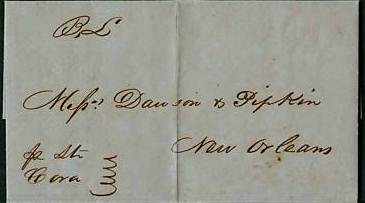 B L
Messrs Dawson & Pipkin
New Orleans
pr Str
Cora